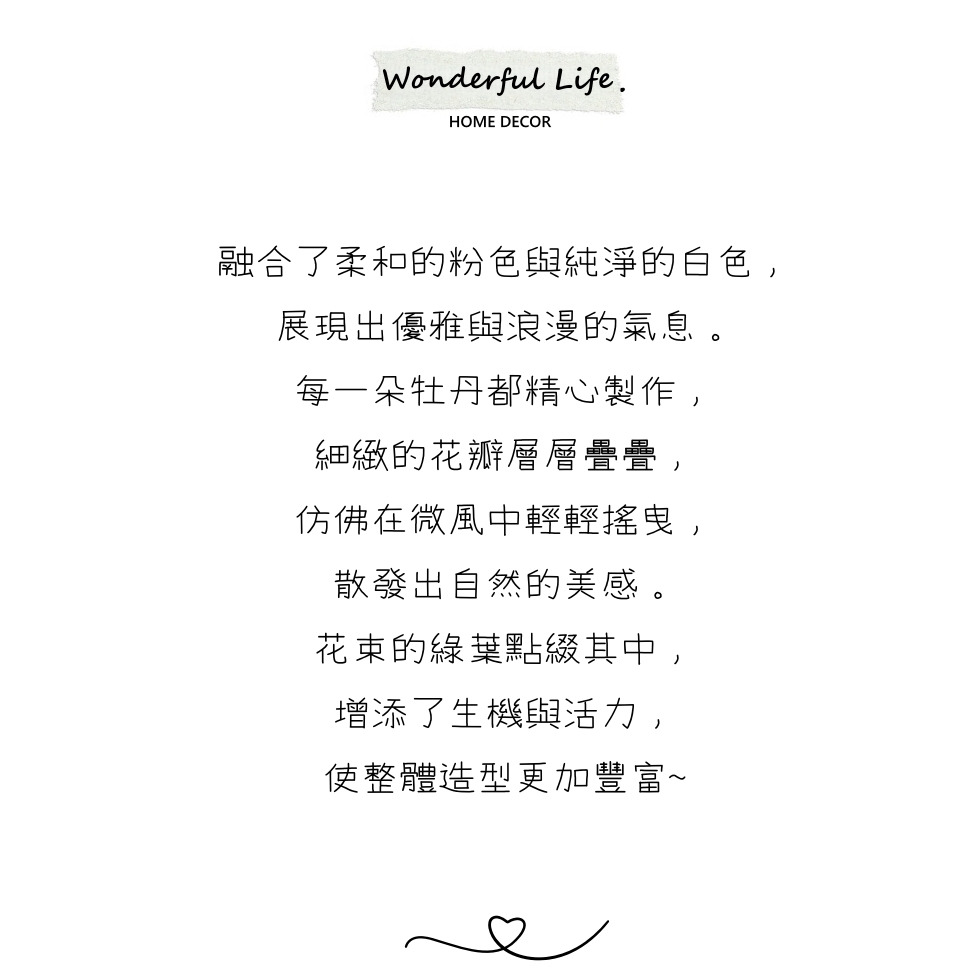 Wonderful Life.
HOME DECOR
融合了柔和的粉色與純淨的白色，
展現出優雅與浪漫的氣息。
每一朵牡丹都精心製作，
細緻的花瓣層層疊疊，
仿佛在微風中輕輕搖曳，
散發出自然的美感。
花束的綠葉點綴其中，
增添了生機與活力，
使整體造型更加豐富~